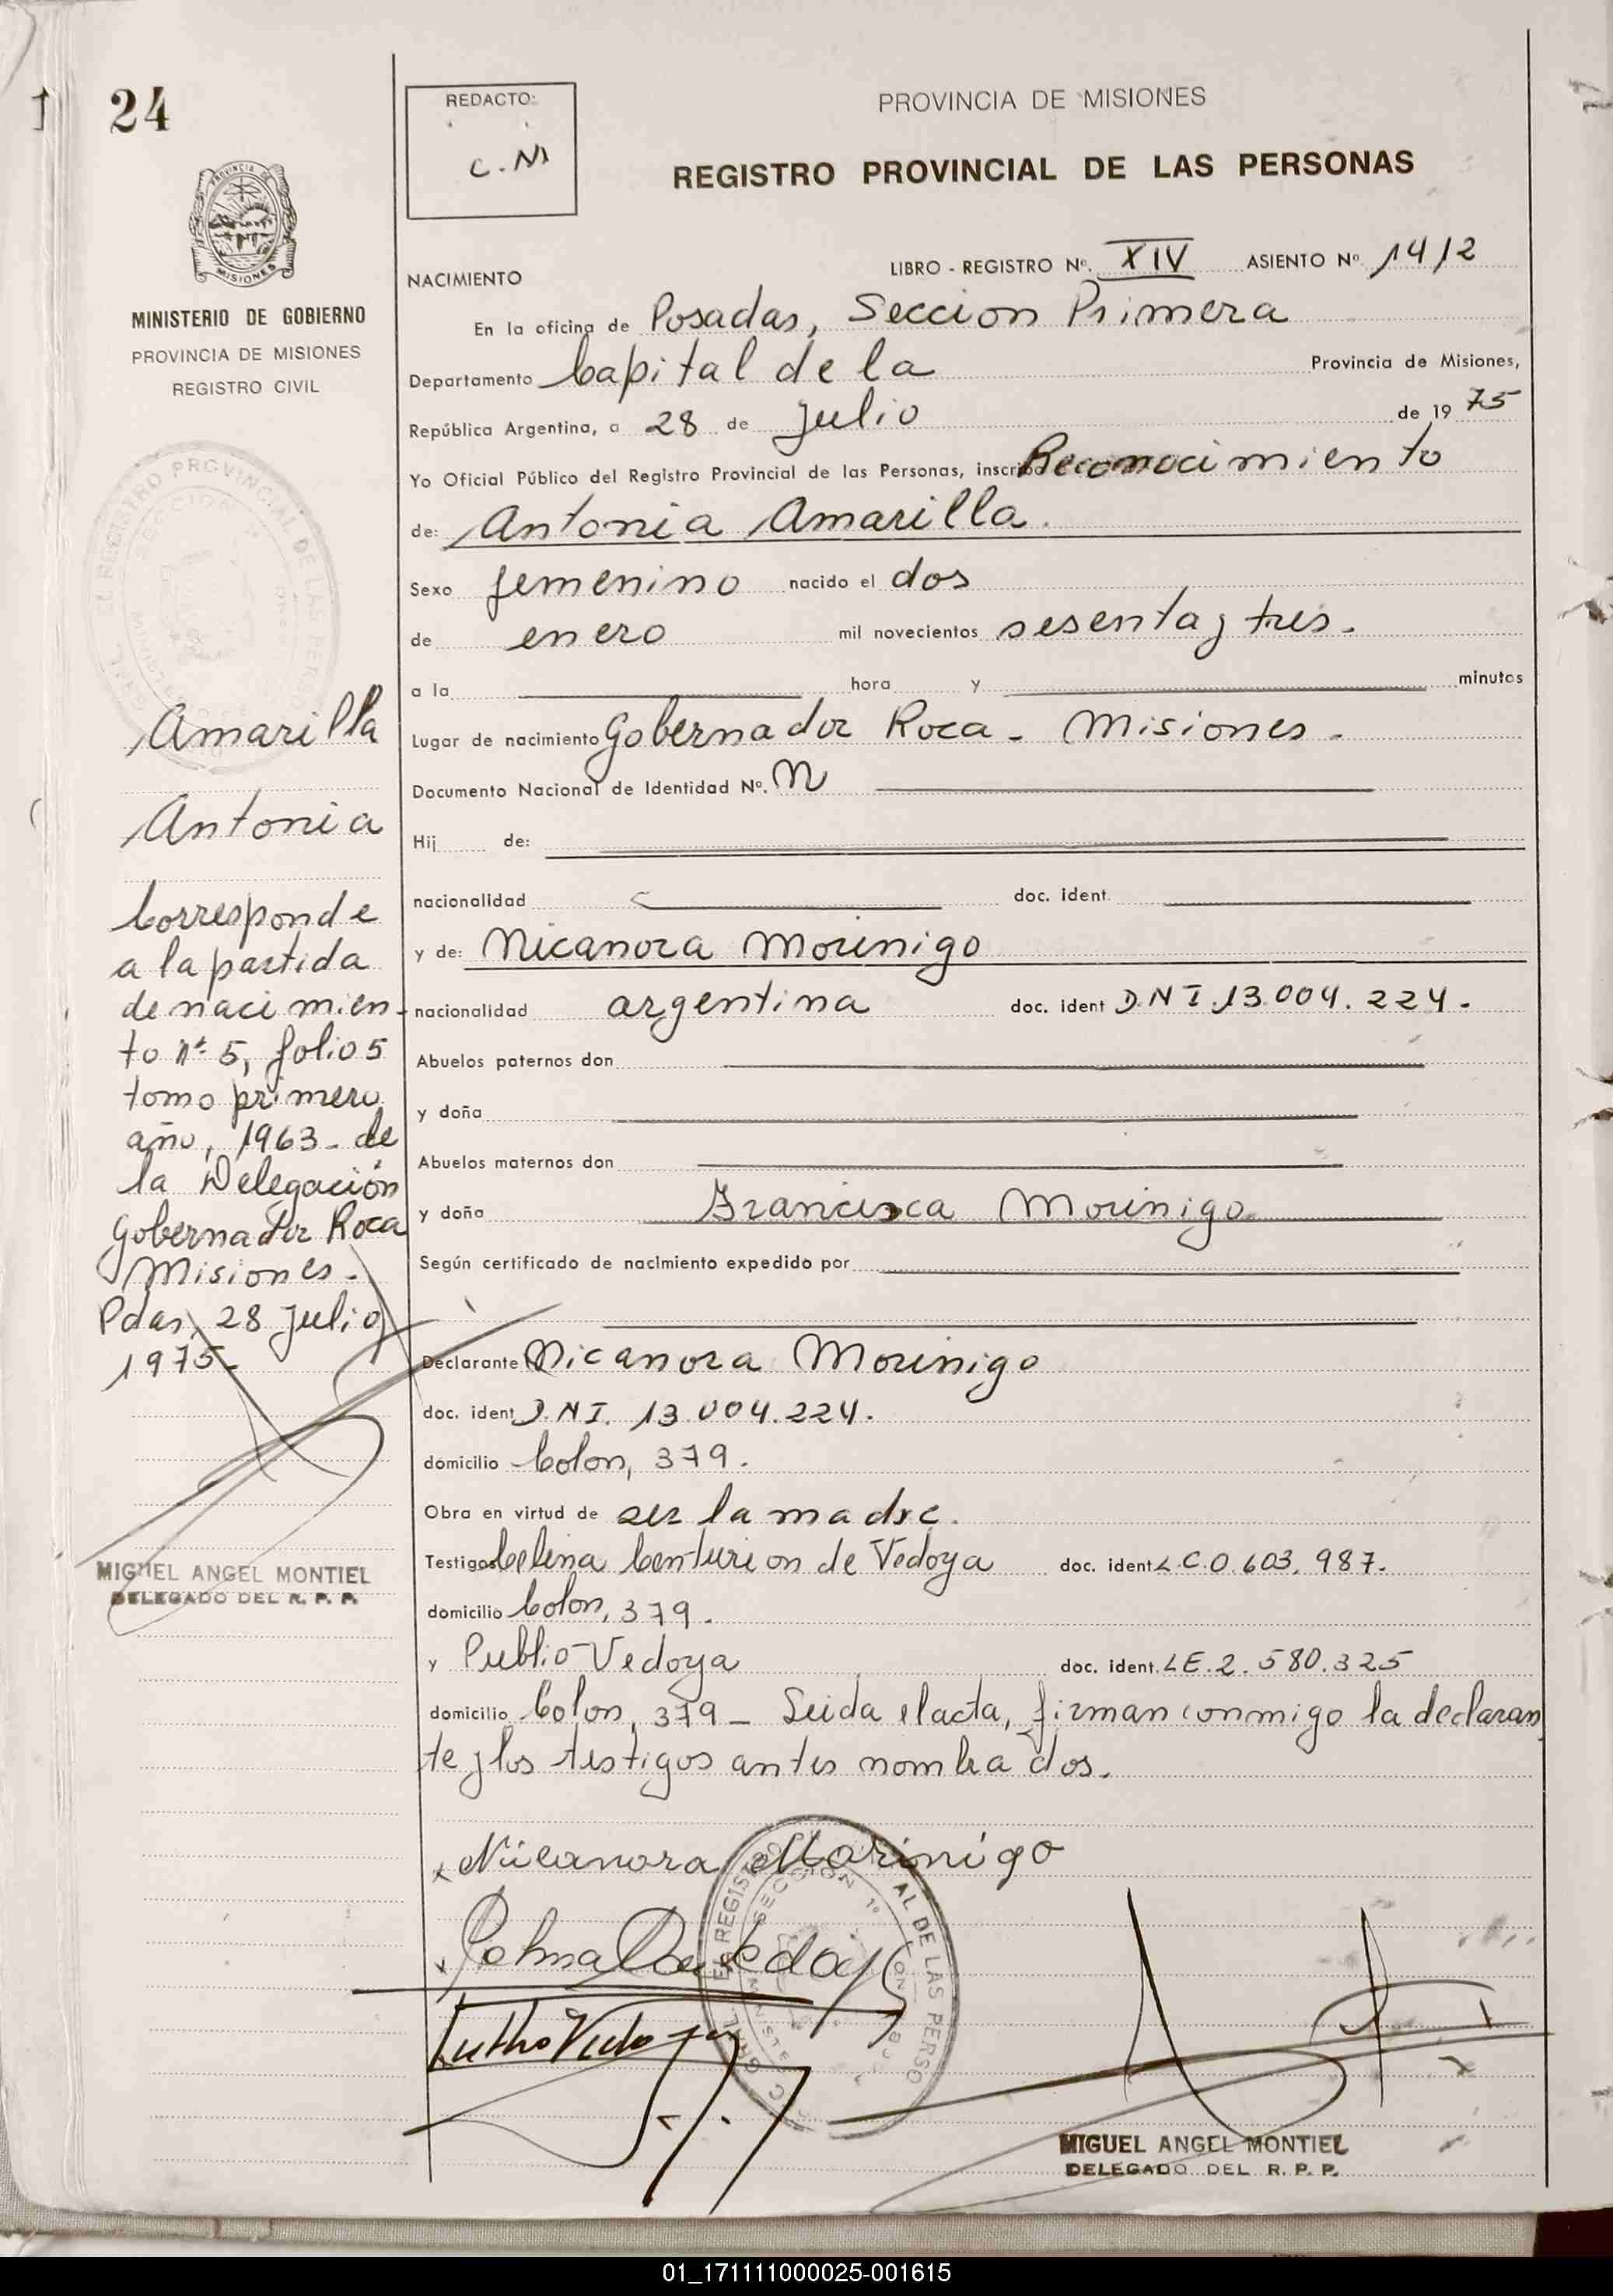 24
REDACTO:
C.N
PROVINCIA DE MISIONES
REGISTRO PROVINCIAL DE LAS PERSONAS
MISIONES
MINISTERIO DE GOBIERNO
PROVINCIA DE MISIONES
REGISTRO CIVIL
NACIMIENTO
LIBRO - REGISTRO Nº. XIV ASIENTO Nº 1412
En la oficina de Posadas, Seccion Primera
Departamento Capital de la Provincia de Misiones,
República Argentina, a 28 de Julio de 19 75
Yo Oficial Público del Registro Provincial de las Personas, inscribo Reconocimiento
de: Antonia Amarilla.
Sexo femenino nacido el dos
de enero mil novecientos sesenta y tres.
a la hora y minutos
Lugar de nacimiento Gobernador Roca - Misiones -
Documento Nacional de Identidad Nº. N
Hij de:
nacionalidad doc. ident.
y de: Nicanora Morinigo
nacionalidad argentina doc. ident D.N.I. 13.004.224.-
Abuelos paternos don
y doña
Abuelos maternos don
y doña Francisca Morinigo
Según certificado de nacimiento expedido por
Declarante Nicanora Morinigo
doc. ident D.N.I. 13.004.224.
domicilio Colon, 379.
Obra en virtud de ser la madre.
Testigos Celina Centurion de Vedoya doc. ident L.C.0.603.987.
domicilio Colon, 379.
y Publio Vedoya doc. ident. L.E.2.580.325
domicilio Colon, 379 - Leida el acta, firman conmigo la declaran
te y los testigos antes nombrados.
Nicanora Morinigo
MIGUEL ANGEL MONTIEL
DELEGADO DEL R. P. P.
Amarilla
Antonia
Corresponde
a la partida
de nacimien-
to nº 5, folio 5
tomo primero
año, 1963 - de
la Delegación
Gobernador Roca
Misiones.
Pdas, 28 Julio
1975-
MIGUEL ANGEL MONTIEL
DELEGADO DEL R. P. P.
01_171111000025-001615